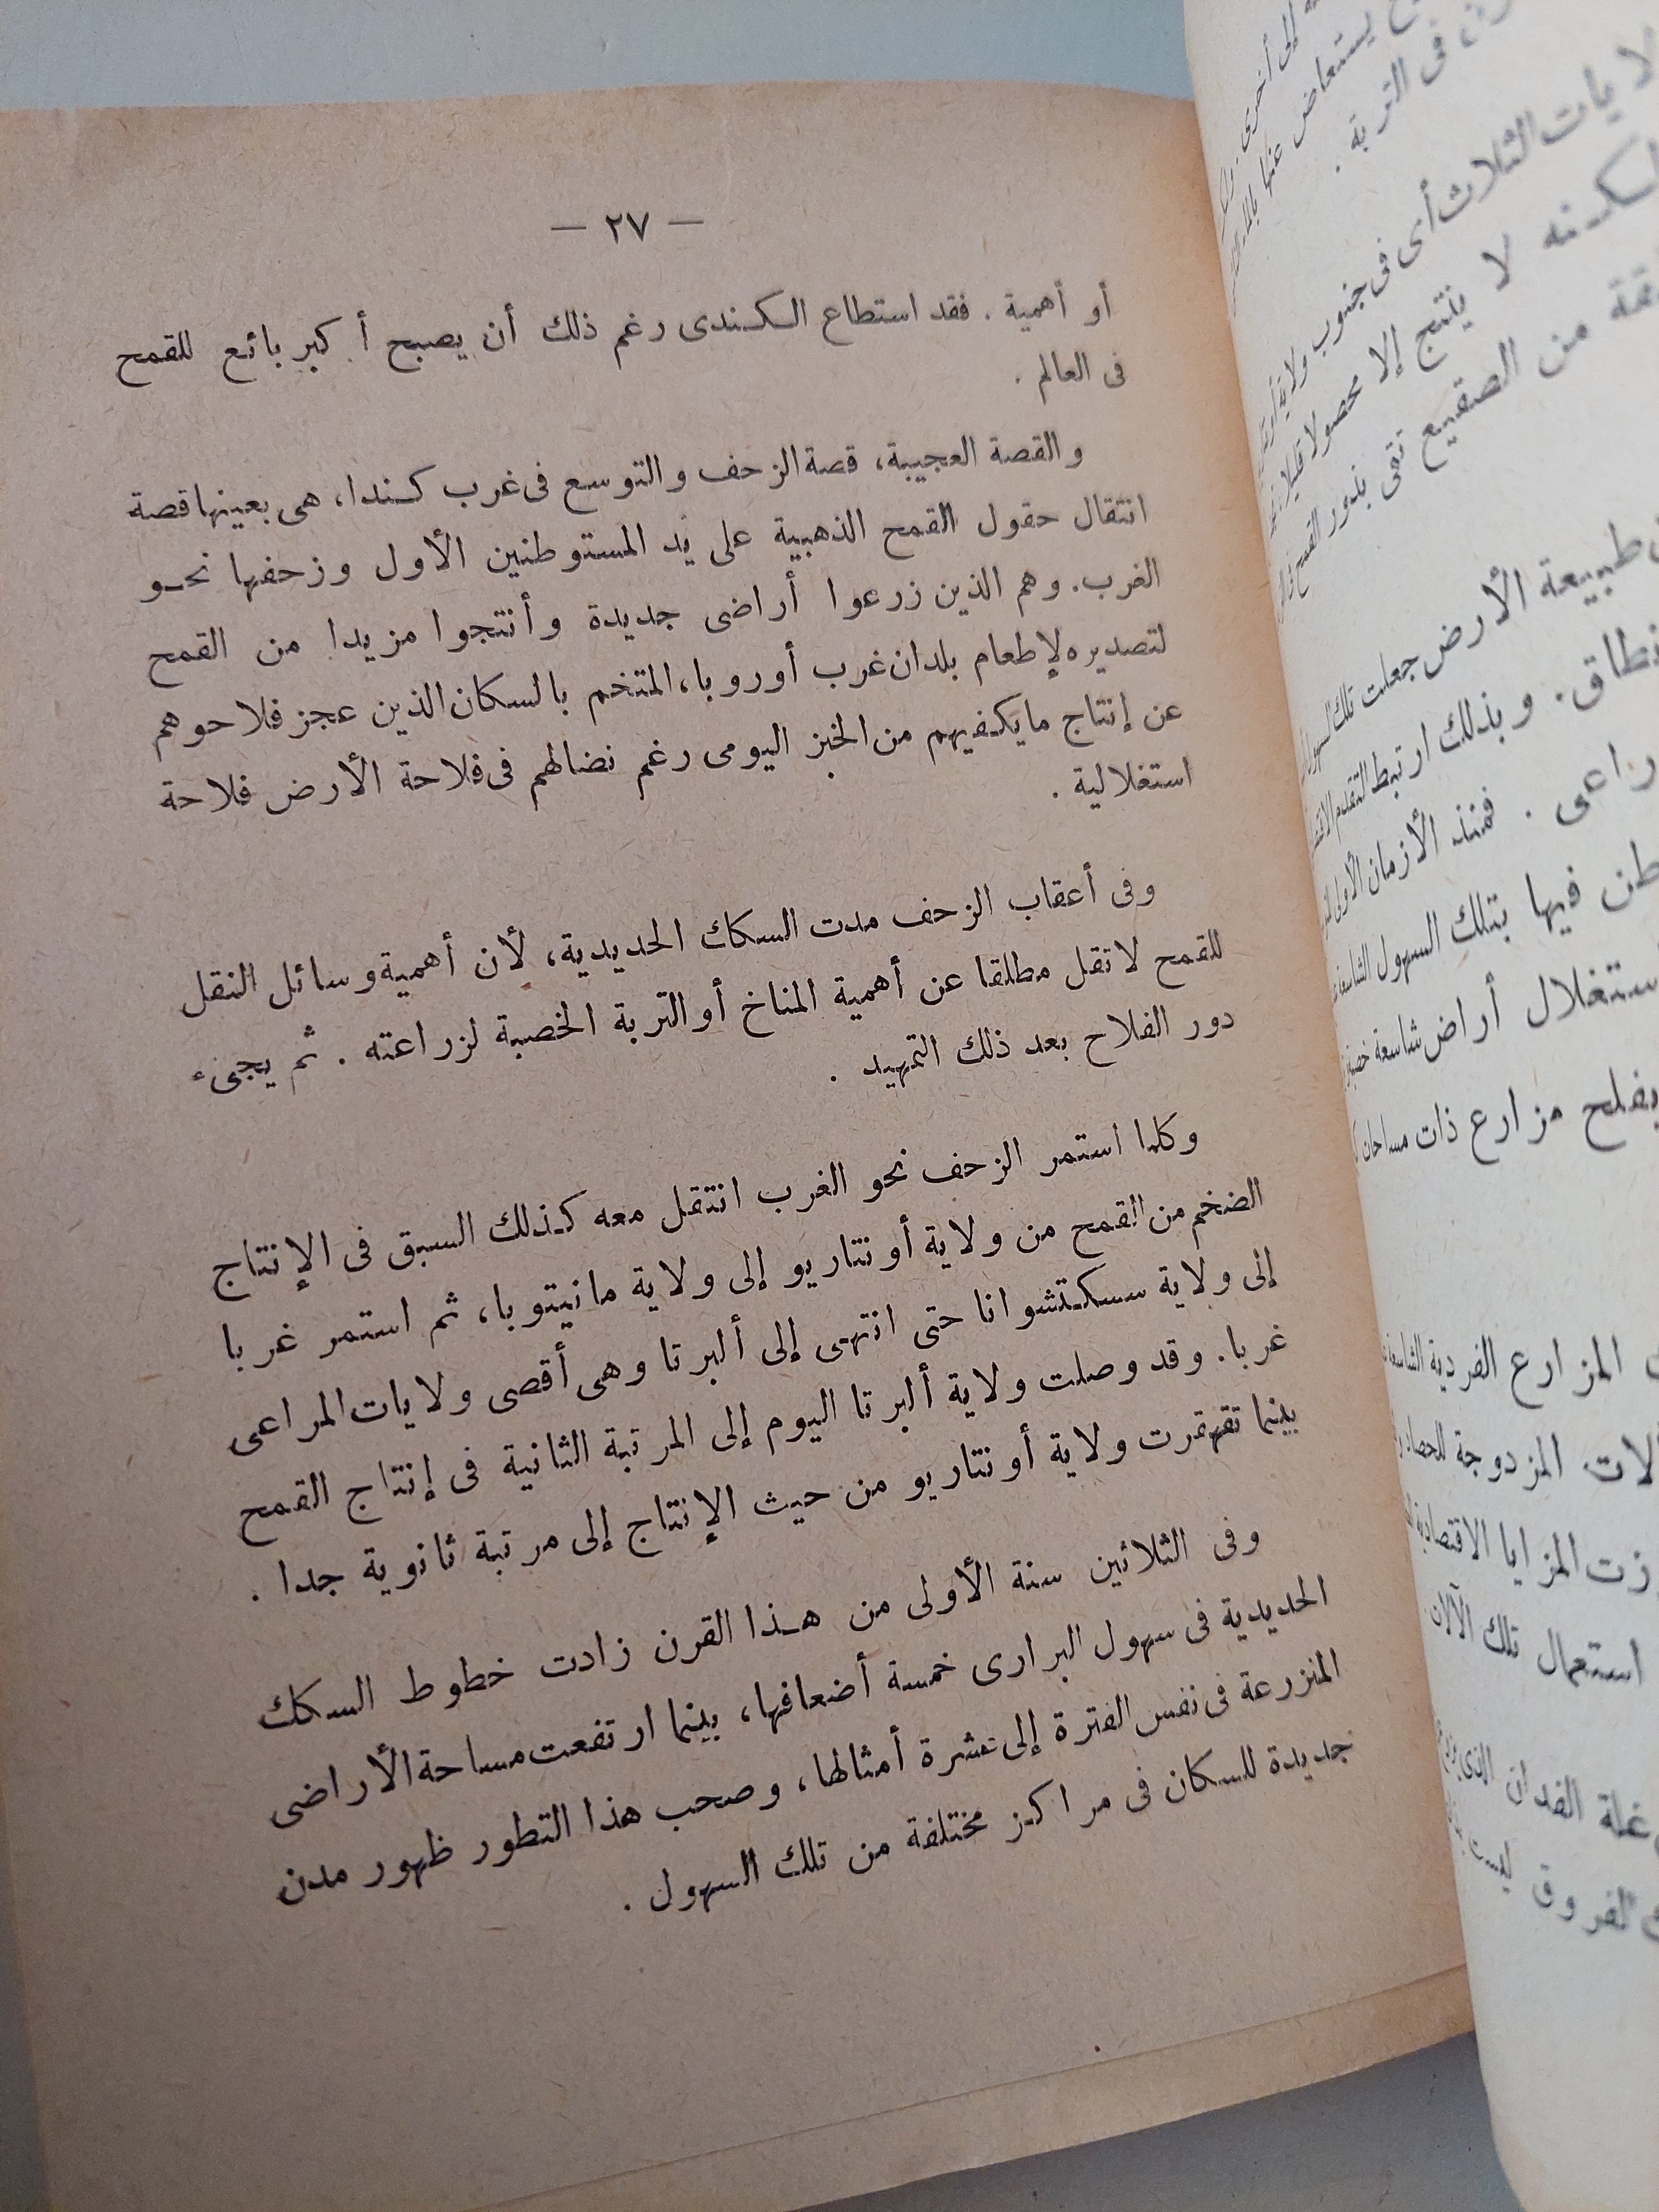 — ٢٧ —
أو أهمية . فقد استطاع الكندى رغم ذلك أن يصبح أكبر بائع للقمح
فى العالم .
والقصة العجيبة، قصة الزحف والتوسع فى غرب كندا، هى بعينها قصة
انتقال حقول القمح الذهبية على يد المستوطنين الأول وزحفها نحو
الغرب. وهم الذين زرعوا أراضى جديدة وأنتجوا مزيدا من القمح
لتصديره لإطعام بلدان غرب أوروبا، المتخم بالسكان الذين عجز فلاحوهم
عن إنتاج ما يكفيهم من الخبز اليومى رغم نضالهم فى فلاحة الأرض فلاحة
استغلالية .
وفى أعقاب الزحف مدت السكاك الحديدية، لأن أهمية وسائل النقل
للقمح لا تقل مطلقا عن أهمية المناخ أو التربة الخصبة لزراعته . ثم يجىء
دور الفلاح بعد ذلك التمهيد .
وكلما استمر الزحف نحو الغرب انتقل معه كذلك السبق فى الإنتاج
الضخم من القمح من ولاية أونتاريو إلى ولاية مانيتوبا، ثم استمر غربا
إلى ولاية سسكتشوانا حتى انتهى إلى ألبرتا وهى أقصى ولايات المراعى
غربا. وقد وصلت ولاية ألبرتا اليوم إلى المرتبة الثانية فى إنتاج القمح
بينما تقهقرت ولاية أونتاريو من حيث الإنتاج إلى مرتبة ثانوية جدا .
وفى الثلاثين سنة الأولى من هذا القرن زادت خطوط السكك
الحديدية فى سهول البرارى خمسة أضعافها، بينما ارتفعت مساحة الأراضى
المنزرعة فى نفس الفترة إلى عشرة أمثالها، وصحب هذا التطور ظهور مدن
جديدة للسكان فى مراكز مختلفة من تلك السهول .
إلى أخرى
يستعاض عنها
فى التربة .
الثلاث أى فى جنوب ولاية
لا ينتج إلا محصولا قليلا
من الصقيع تقى بذور القمح
طبيعة الأرض جعلت تلك
نطاق. وبذلك ارتبط التقدم
. فمنذ الأزمان الأولى
فيها بتلك السهول
أراض شاسعة
يفلح مزارع ذات
المزارع الفردية
المزدوجة
المزايا الاقتصادية
استعمال تلك الآلات
غلة الفدان الذى
الفروق ليست